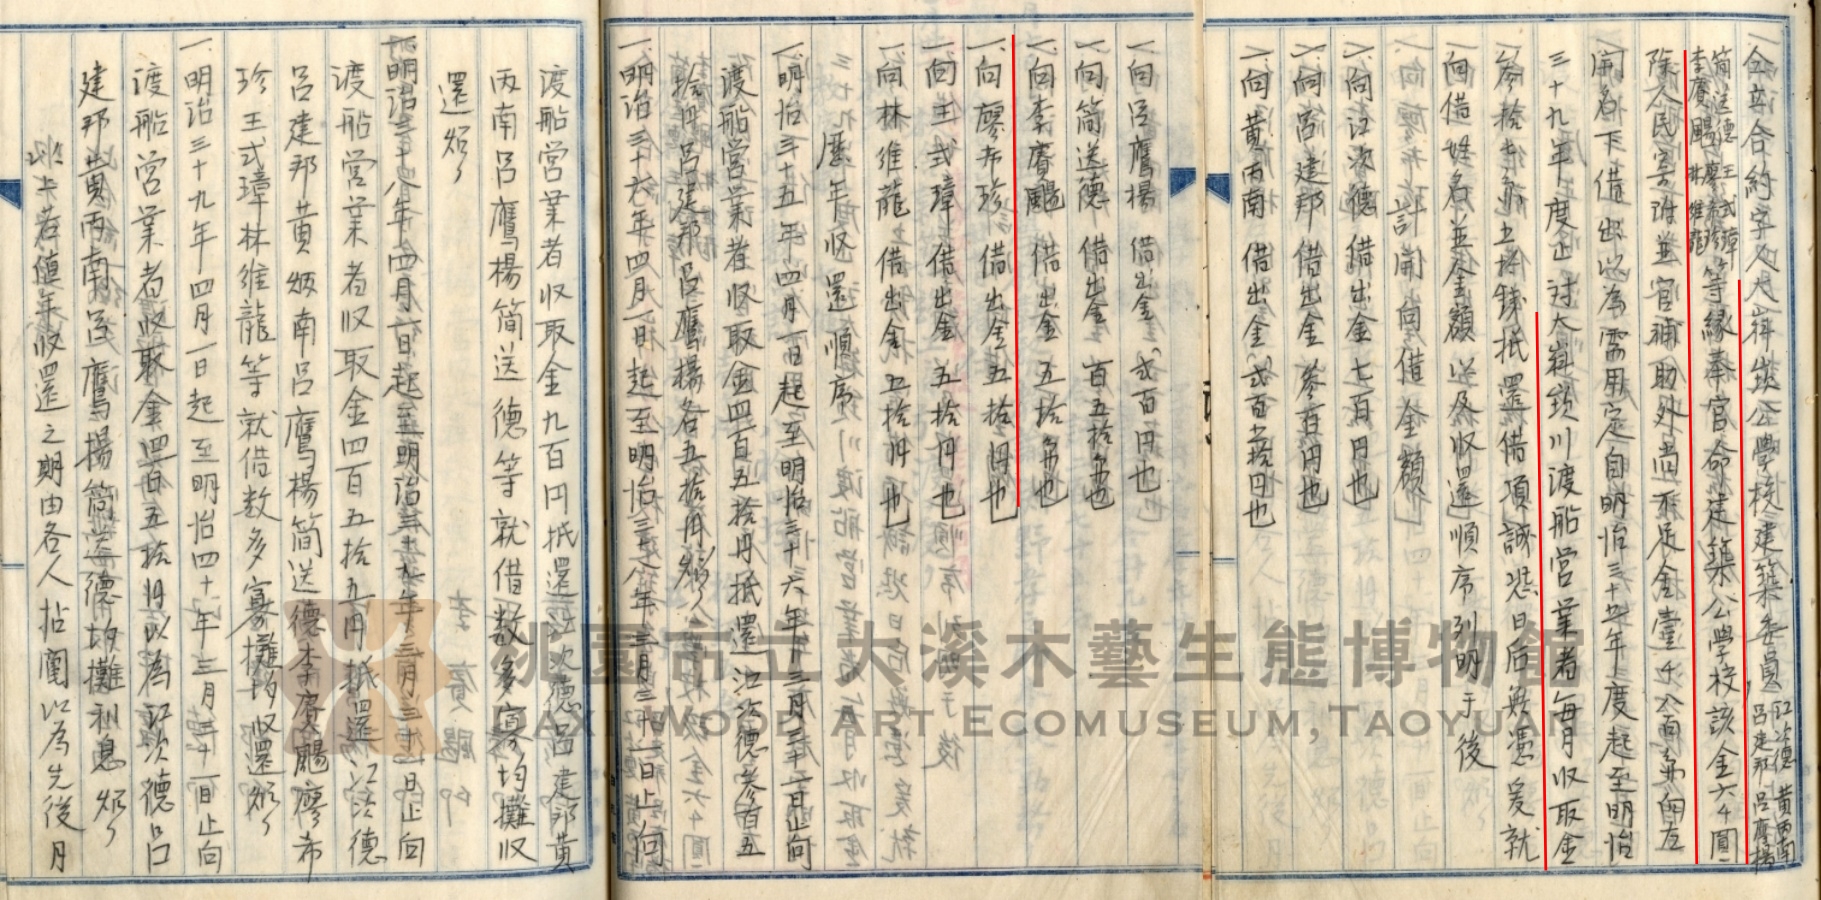 一仝立合約字人大嵙崁公學校建築委員江次德 黃丙南
呂建邦 呂鷹揚
簡送德 王式璋
李賡颺 廖希珍
林維龍
等緣奉官命建築公學校該金六千圓
除人民寄附並官補助外尚不足金壹千八百円向左
開名下借出以為需用定自明治三十五年度起至明治
三十九年度止討大嵙崁川渡船營業者每月收取金
參拾七円五拾錢抵還借項誠恐日后無憑爰就
向借姓名並金額以及收還順序列明于後
計開向借金額
一向江次德借出金七百円也
一向呂建邦借出金參百円也
一向黃丙南借出金貳百五拾円也
一向呂鷹揚借出金貳百円也
一向簡送德借出金百五拾円也
一向李賡颺借出金五拾円也
一向廖希珍借出金五拾円也
一向王式璋借出金五拾円也
一向林維龍借出金五拾円也
歷年收還順序
一明治三十五年四月一日起至明治三十六年三月三十一日止向
渡船營業者收取金四百五拾円抵還江次德參百五
拾円呂建邦呂鷹揚各五拾円炤
一明治三十六年四月一日起至明治三十八年三月三十一日止向
渡船營業者收取金九百円抵還江次德呂建邦黃
丙南呂鷹楊簡送德等就借数多寡均攤收
還炤
一明治三十八年四月一日起至明治三十九年三月三十一日止向
渡船營業者収取金四百五拾円抵還江次德
呂建邦黃炳南呂鷹楊簡送德李賡颺廖希
珍王式璋林維龍等就借数多寡攤均收還炤
一明治三十九年四月一日起至明治四十年三月三十一日止向
渡船營業者収取金四百五拾円以為江次德呂
建邦黃丙南呂鷹揚簡送德均攤利息炤
批卜若值年収還之期由各人拈鬮以為先後月
桃園市立大溪木藝生態博物館
DAXI WOOD ART ECOMUSEUM, TAOYUAN